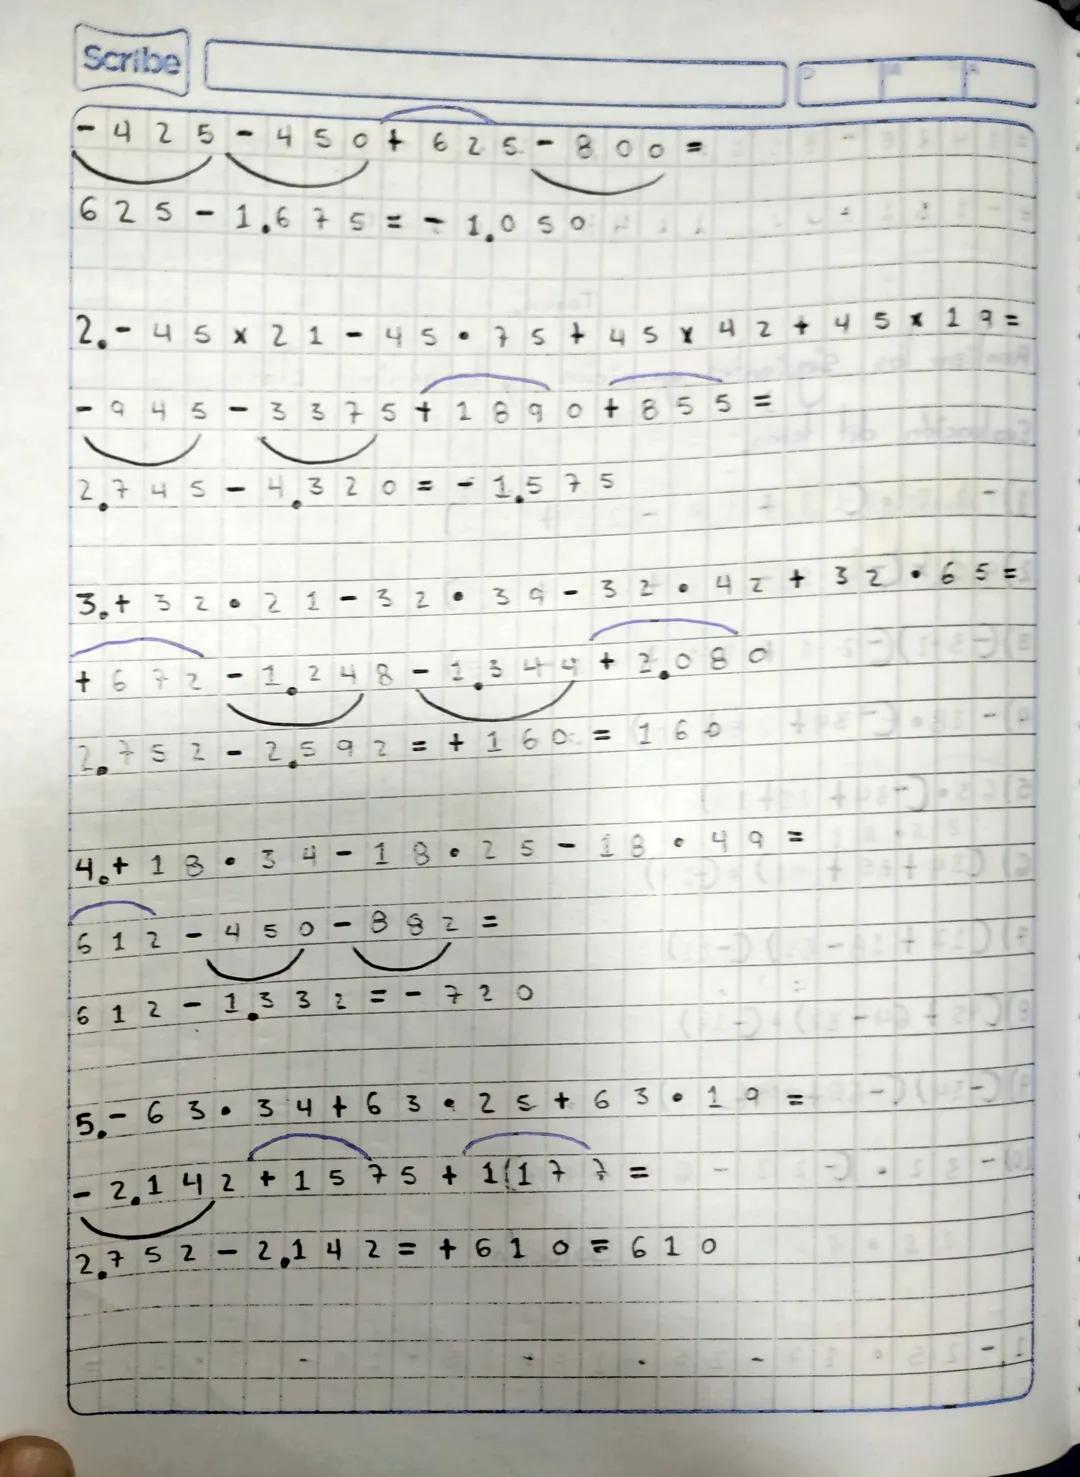 Scribe
- 425 - 450 + 625 - 800 =
625 - 1.675 = - 1.050
2. - 45 x 21 - 45 • 75 + 45 x 42 + 45 x 19 =
- 945 - 3375 + 1890 + 855 =
2.745 - 4.320 = - 1.575
3. + 32 • 21 - 32 • 39 - 32 • 42 + 32 • 65 =
+ 672 - 1.248 - 1.344 + 2.080
2.752 - 2.592 = + 160 = 160
4. + 18 • 34 - 18 • 25 - 18 • 49 =
612 - 450 - 882 =
612 - 1.332 = - 720
5. - 63 • 34 + 63 • 25 + 63 • 19 =
- 2.142 + 1575 + 1(177 =
2.752 - 2.142 = + 610 = 610